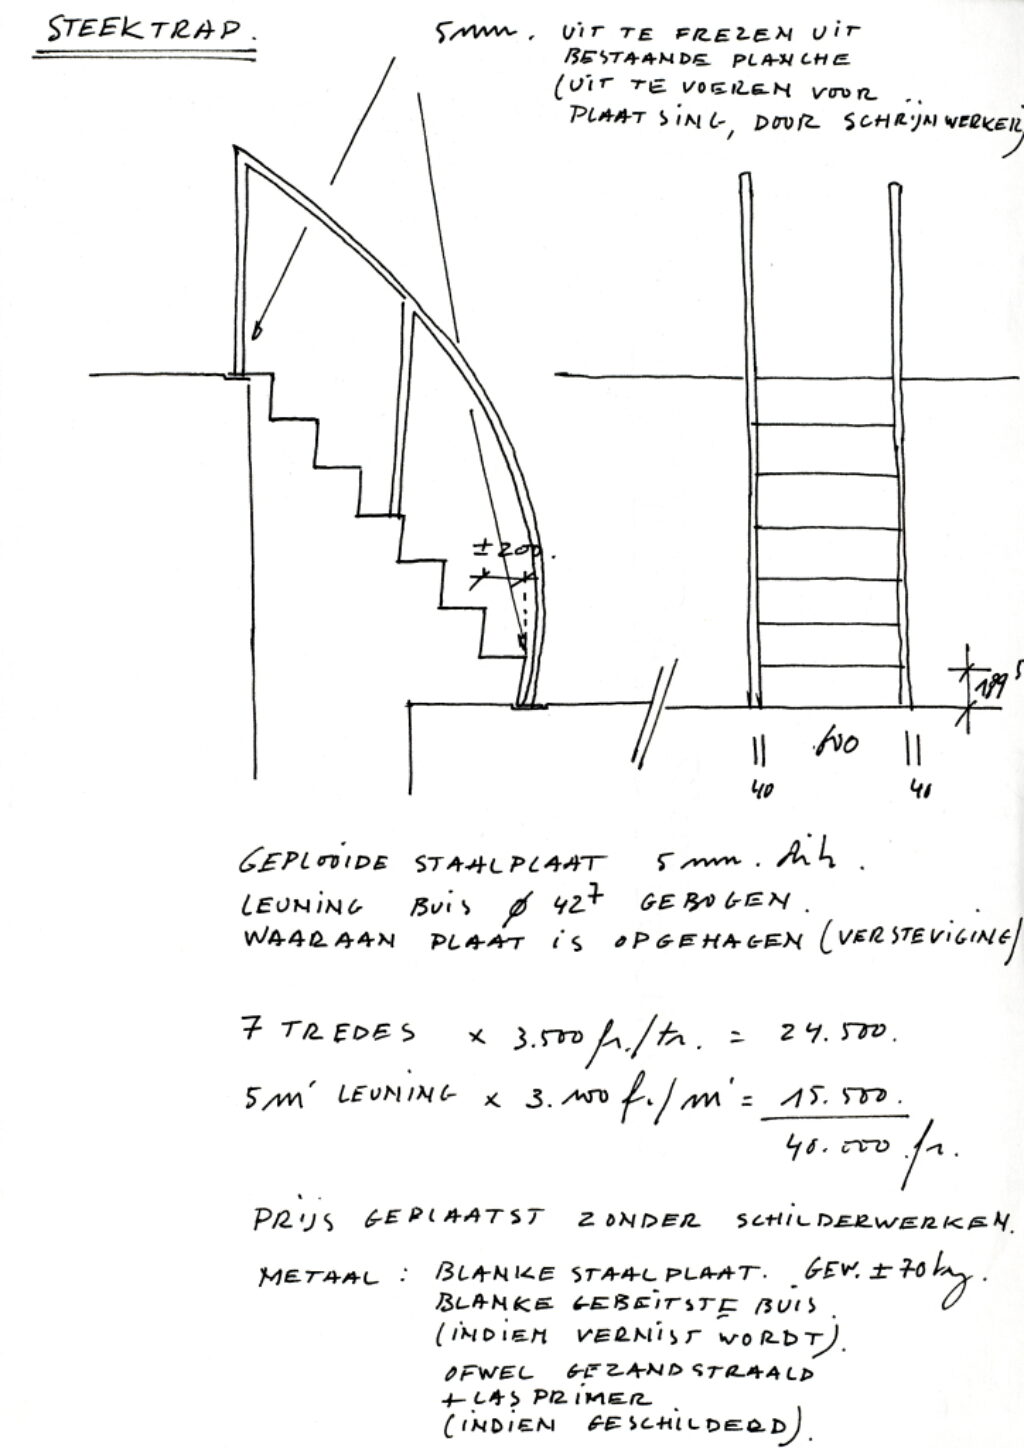 STEEKTRAP.
5mm. UIT TE FREZEN UIT
BESTAANDE PLANCHE
(UIT TE VOEREN VOOR
PLAATSING, DOOR SCHRIJNWERKER)
± 200.
199⁵
600
40
40
GEPLOOIDE STAALPLAAT 5 mm. dik.
LEUNING BUIS ø 42⁷ GEBOGEN.
WAARAAN PLAAT IS OPGEHAGEN (VERSTEVIGING)
7 TREDES x 3.500 fr./tr. = 24.500.
5 m' LEUNING x 3.100 f./m' = 15.500.
40.000 fr.
PRIJS GEPLAATST ZONDER SCHILDERWERKEN.
METAAL : BLANKE STAALPLAAT. GEW. ± 70 kg.
BLANKE GEBEITSTE BUIS.
(INDIEN VERNIST WORDT).
OFWEL GEZANDSTRAALD
+ LAS PRIMER
(INDIEN GESCHILDERD).